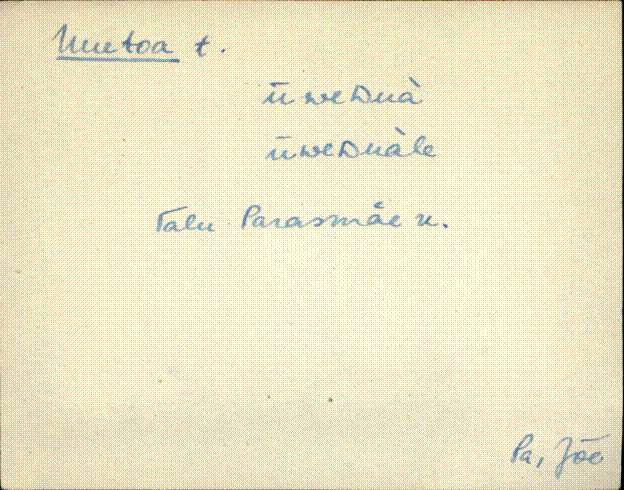 Uuetoa t.
ūweᴅuà
ūweᴅuàle
Talu Parasmäe k.
Pa, Jõe